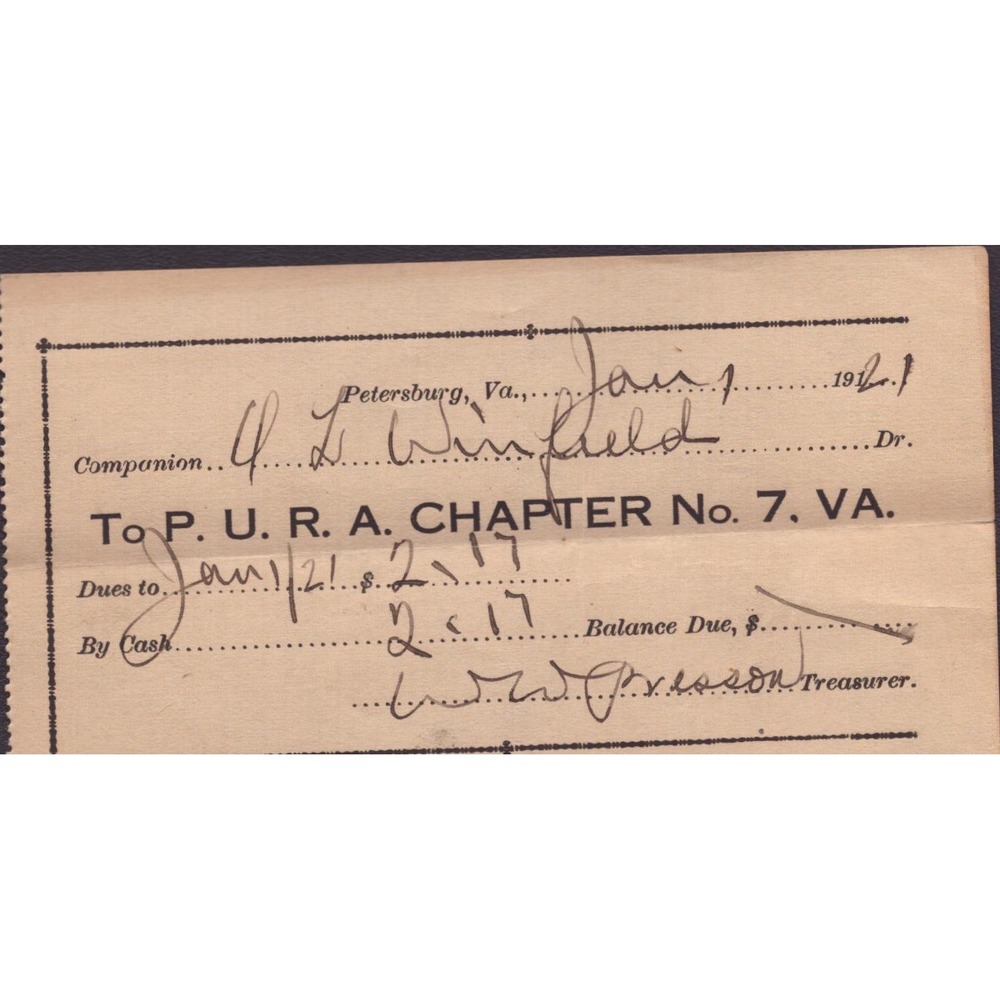 Petersburg, Va., Jan 1 1921
Companion L Winfield Dr.
To P. U. R. A. CHAPTER No. 7, VA.
Dues to Jan 1/21 $ 2.17
By Cash 2.17 Balance Due, $
W W Presson Treasurer.